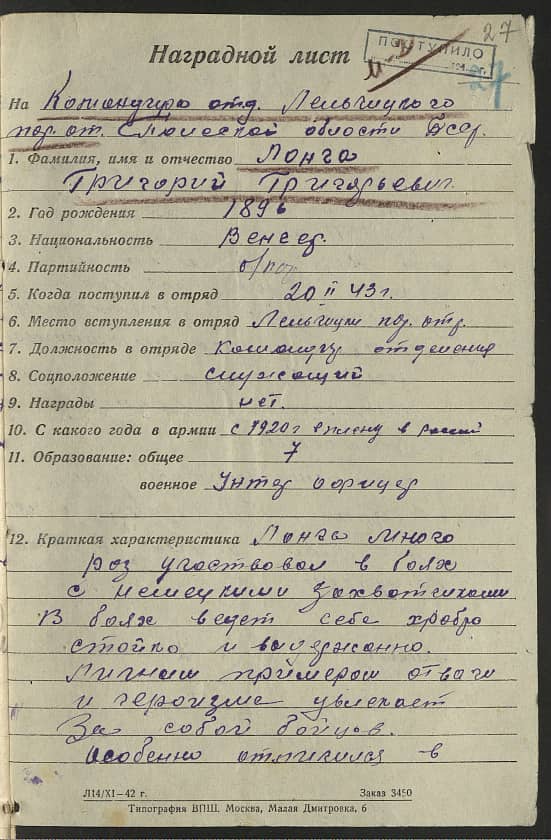 27
ПОСТУПИЛО
27
Наградной лист
На Командира отд. Лельчицкого
пар. от. области
1. Фамилия, имя и отчество Лонга
Григорий Григорьевич.
2. Год рождения 1896
3. Национальность Венгер.
4. Партийность б/пар
5. Когда поступил в отряд 20 II 43 г.
6. Место вступления в отряд Лельчицки пар. отр.
7. Должность в отряде Командир отделения
8. Соцположение служащий
9. Награды нет.
10. С какого года в армии с 1920 г в плену в России
11. Образование: общее 7
военное Унтер офицер
12. Краткая характеристика Лонга много
раз участвовал в боях
с немецкими захватчиками
В боях ведет себя храбро
стойко и выдержанно.
Личным примером отваги
и героизма увлекает
За собой бойцов.
Особенно отличился в
Л14/XI—42 г. Заказ 3450
Типография ВПШ. Москва, Малая Дмитровка, 6